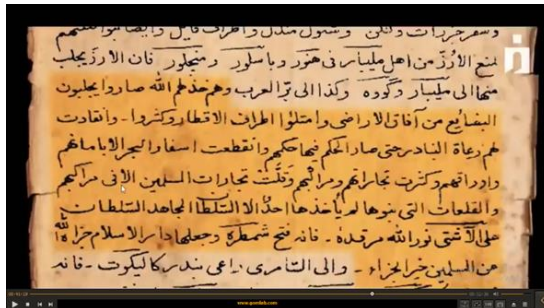 لمنع الأرز من اهل مليبار فى هنور وباسلور ومنجلور فان الارز يجلب
منها الى مليبار وكوده وكذا الى بر العرب وهم خذلهم الله صاروا يجلبون
البضايع من آفاق الاراضى وامتلوا اطراف الاقطار وكثروا - وانقادت
لهم رعاة البنادر حتى صار الحكم فيها حكمهم وانقطعت اسفار البحر الا بامانهم
واوراقهم وكثرت تجاراتهم ومراكبهم وقلت تجارات المسلمين الا فى مراكبهم
والقلعات التى بنوها لم يأخذها احد الا السلطان المجاهد السلطان
على الآشى نور الله مرقده - فانه فتح شمطره وجعلها دار الاسلام جزاه الله
عن المسلمين خير الجزاء - والى السامرى راعى بندر كاليكوت - فانه
www.qsmlaeb.com